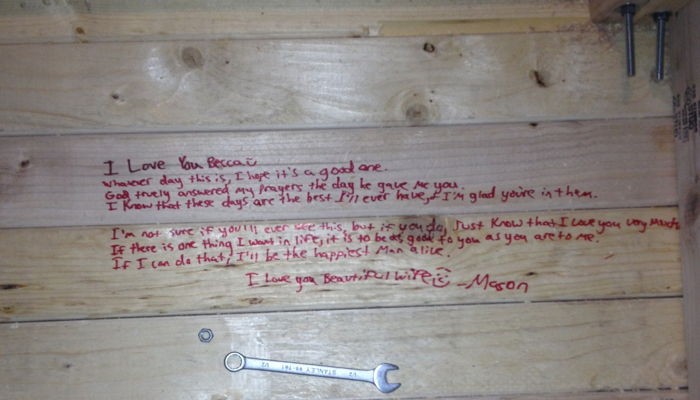 I Love You Becca
Whatever day this is, I hope it's a good one.
God truely answered my prayers the day he gave me you.
I know that these days are the best I'll ever have, & I'm glad you're in them.
I'm not sure if you'll ever see this, but if you do, Just know that I love you very much
If there is one thing I want in life, it is to be as good to you as you are to me.
If I can do that, I'll be the happiest man alive.
I love you Beautiful wife -Mason
1/2 STANLEY 1/2